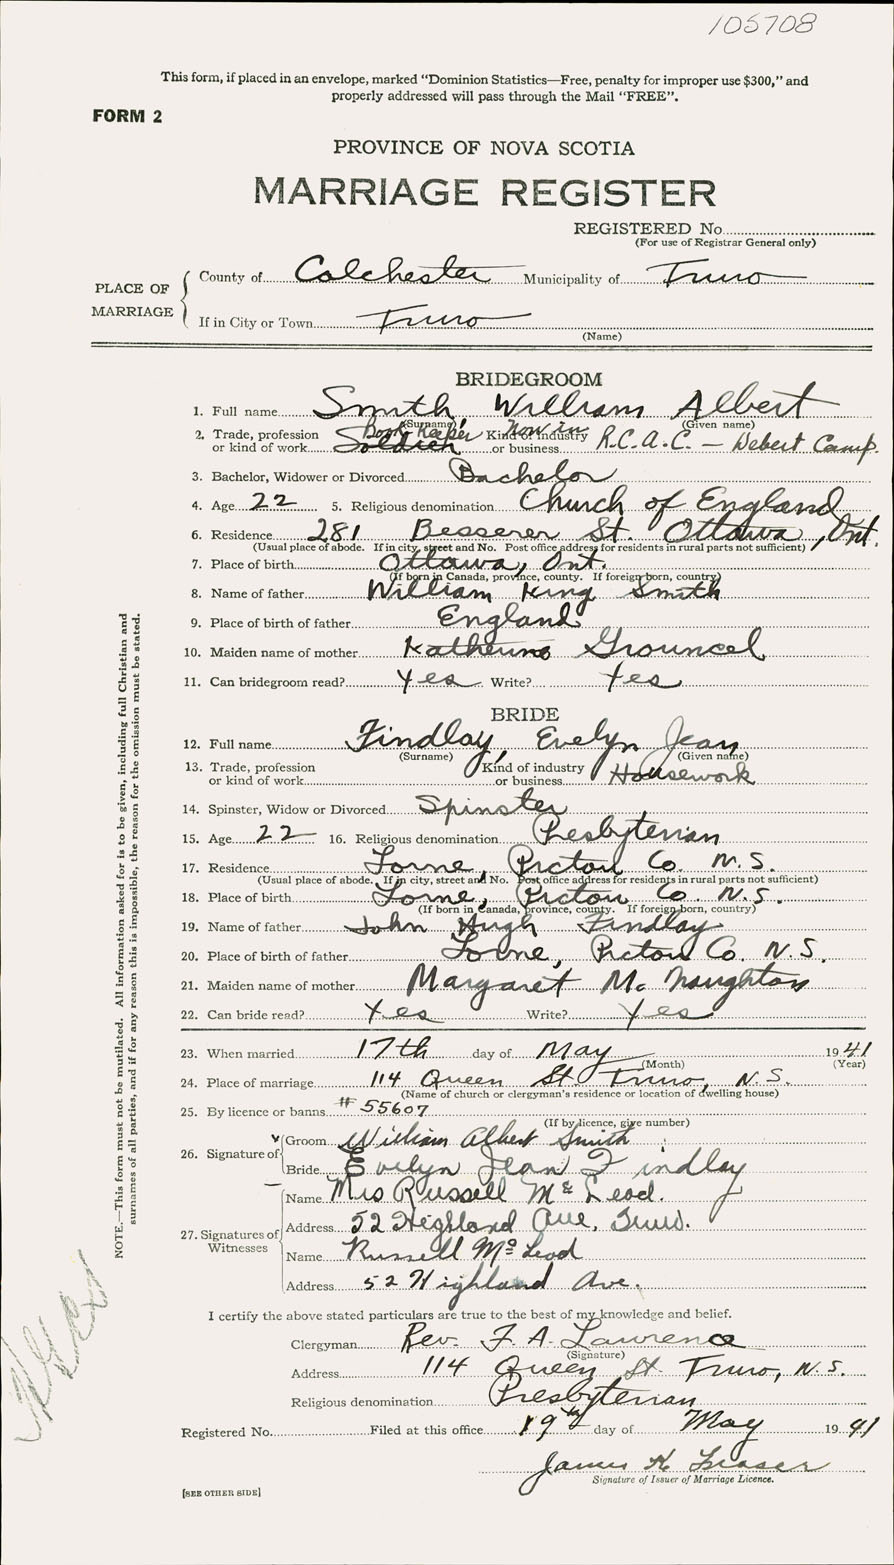 105708
This form, if placed in an envelope, marked "Dominion Statistics—Free, penalty for improper use $300," and
properly addressed will pass through the Mail "FREE".
FORM 2
PROVINCE OF NOVA SCOTIA
MARRIAGE REGISTER
REGISTERED No.
(For use of Registrar General only)
PLACE OF MARRIAGE
County of Colchester Municipality of Truro
If in City or Town Truro
(Name)
BRIDEGROOM
1. Full name Smith, William Albert
(Surname) (Given name)
Book Keeper Now in
2. Trade, profession or kind of work Soldier Kind of industry or business R.C.A.C. — Debert Camp.
3. Bachelor, Widower or Divorced Bachelor
4. Age 22 5. Religious denomination Church of England
6. Residence 281 Besserer St. Ottawa, Ont.
(Usual place of abode. If in city, street and No. Post office address for residents in rural parts not sufficient)
7. Place of birth Ottawa, Ont.
(If born in Canada, province, county. If foreign born, country)
8. Name of father William King Smith
9. Place of birth of father England
10. Maiden name of mother Katherine Grouncel
11. Can bridegroom read? Yes Write? Yes
BRIDE
12. Full name Findlay, Evelyn Jean
(Surname) (Given name)
13. Trade, profession or kind of work Kind of industry or business Housework
14. Spinster, Widow or Divorced Spinster
15. Age 22 16. Religious denomination Presbyterian
17. Residence Lorne, Pictou Co. N.S.
(Usual place of abode. If in city, street and No. Post office address for residents in rural parts not sufficient)
18. Place of birth Lorne, Pictou Co. N.S.
(If born in Canada, province, county. If foreign born, country)
19. Name of father John Hugh Findlay
20. Place of birth of father Lorne, Pictou Co. N.S.
21. Maiden name of mother Margaret McNaughton
22. Can bride read? Yes Write? Yes
23. When married 17th day of May 1941
(Month) (Year)
24. Place of marriage 114 Queen St Truro, N.S.
(Name of church or clergyman's residence or location of dwelling house)
25. By licence or banns #55607
(If by licence, give number)
26. Signature of Groom William Albert Smith
Bride Evelyn Jean Findlay
27. Signatures of Witnesses
Name Mrs Russell McLeod.
Address 52 Highland Ave, Truro.
Name Russell McLeod
Address 52 Highland Ave.
I certify the above stated particulars are true to the best of my knowledge and belief.
Clergyman Rev. F. A. Lawrence
(Signature)
Address 114 Queen St. Truro, N.S.
Religious denomination Presbyterian
Registered No. Filed at this office 19th day of May 1941
James K Fraser
Signature of Issuer of Marriage Licence.
[SEE OTHER SIDE]
NOTE.—This form must not be mutilated. All information asked for is to be given, including full Christian and
surnames of all parties, and if for any reason this is impossible, the reason for the omission must be stated.